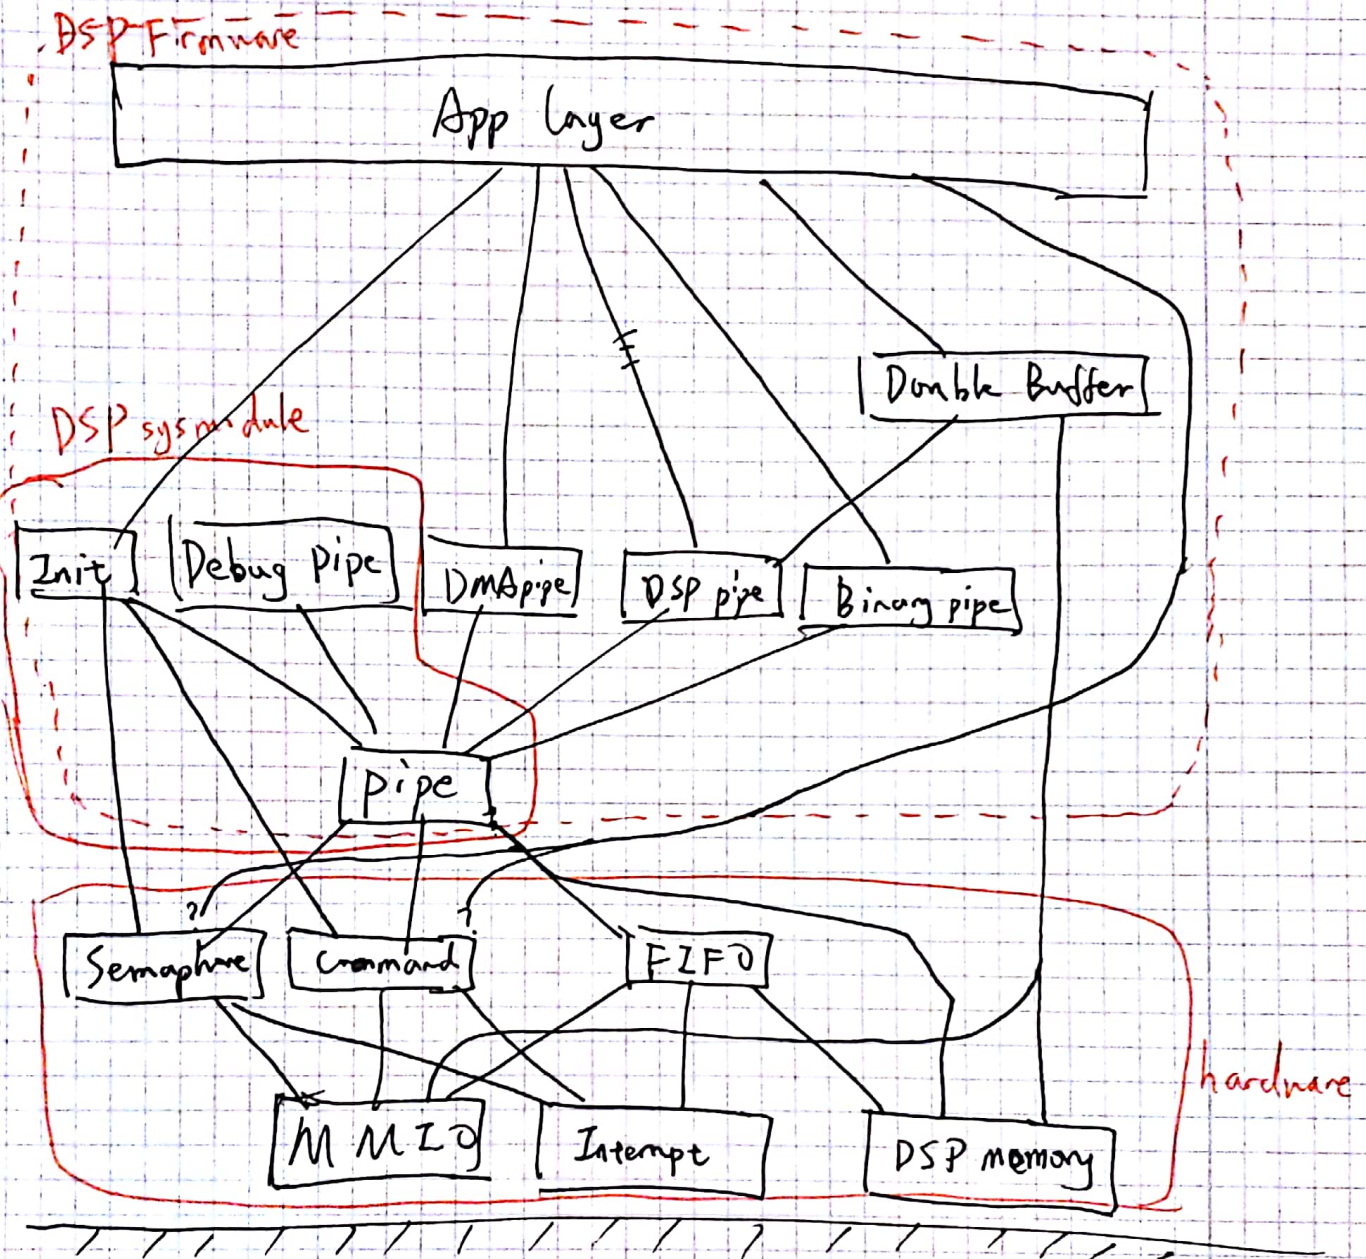 DSP Firmware
App layer
Double Buffer
DSP sysmodule
Init
Debug pipe
DMA pipe
DSP pipe
Binary pipe
pipe
?
?
Semaphore
Command
FIFO
hardware
MMIO
Interrupt
DSP memory